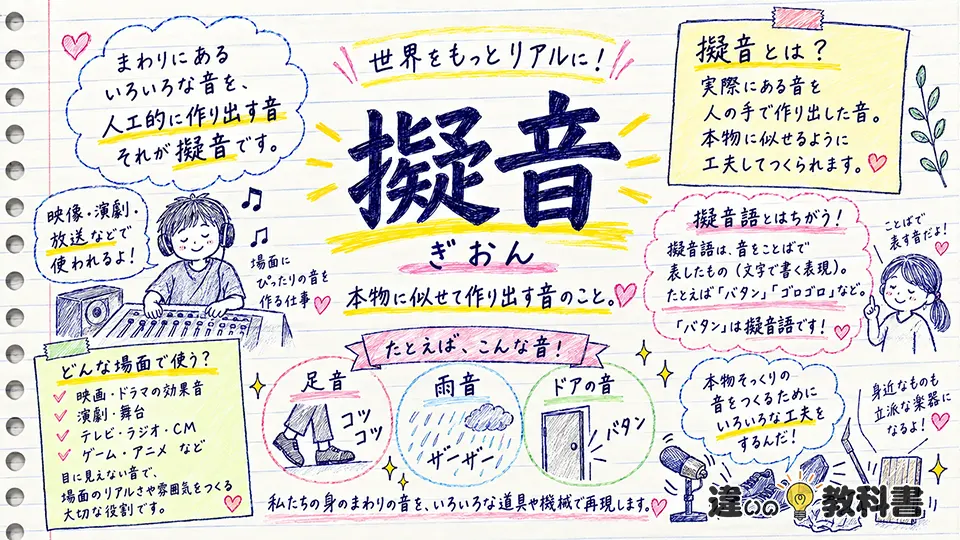 まわりにある
いろいろな音を、
人工的に作り出す音
それが擬音です。
世界をもっとリアルに！
擬音
ぎおん
本物に似せて作り出す音のこと。
擬音とは？
実際にある音を
人の手で作り出した音。
本物に似せるように
工夫してつくられます。
映像・演劇・
放送などで
使われるよ！
場面に
ぴったりの音を
作る仕事
擬音語とはちがう！
擬音語は、音をことばで
表したもの（文字で書く表現）。
たとえば「バタン」「ゴロゴロ」など。
「バタン」は擬音語です！
ことばで
表す音だよ！
どんな場面で使う？
映画・ドラマの効果音
演劇・舞台
テレビ・ラジオ・CM
ゲーム・アニメ など
目に見えない音で、
場面のリアルさや雰囲気をつくる
大切な役割です。
たとえば、こんな音！
足音
コツ
コツ
雨音
ザーザー
ドアの音
バタン
私たちの身のまわりの音を、いろいろな道具や機械で再現します。
本物そっくりの
音をつくるために
いろいろな工夫を
するんだ！
身近なものも
立派な楽器に
なるよ！
違いの教科書